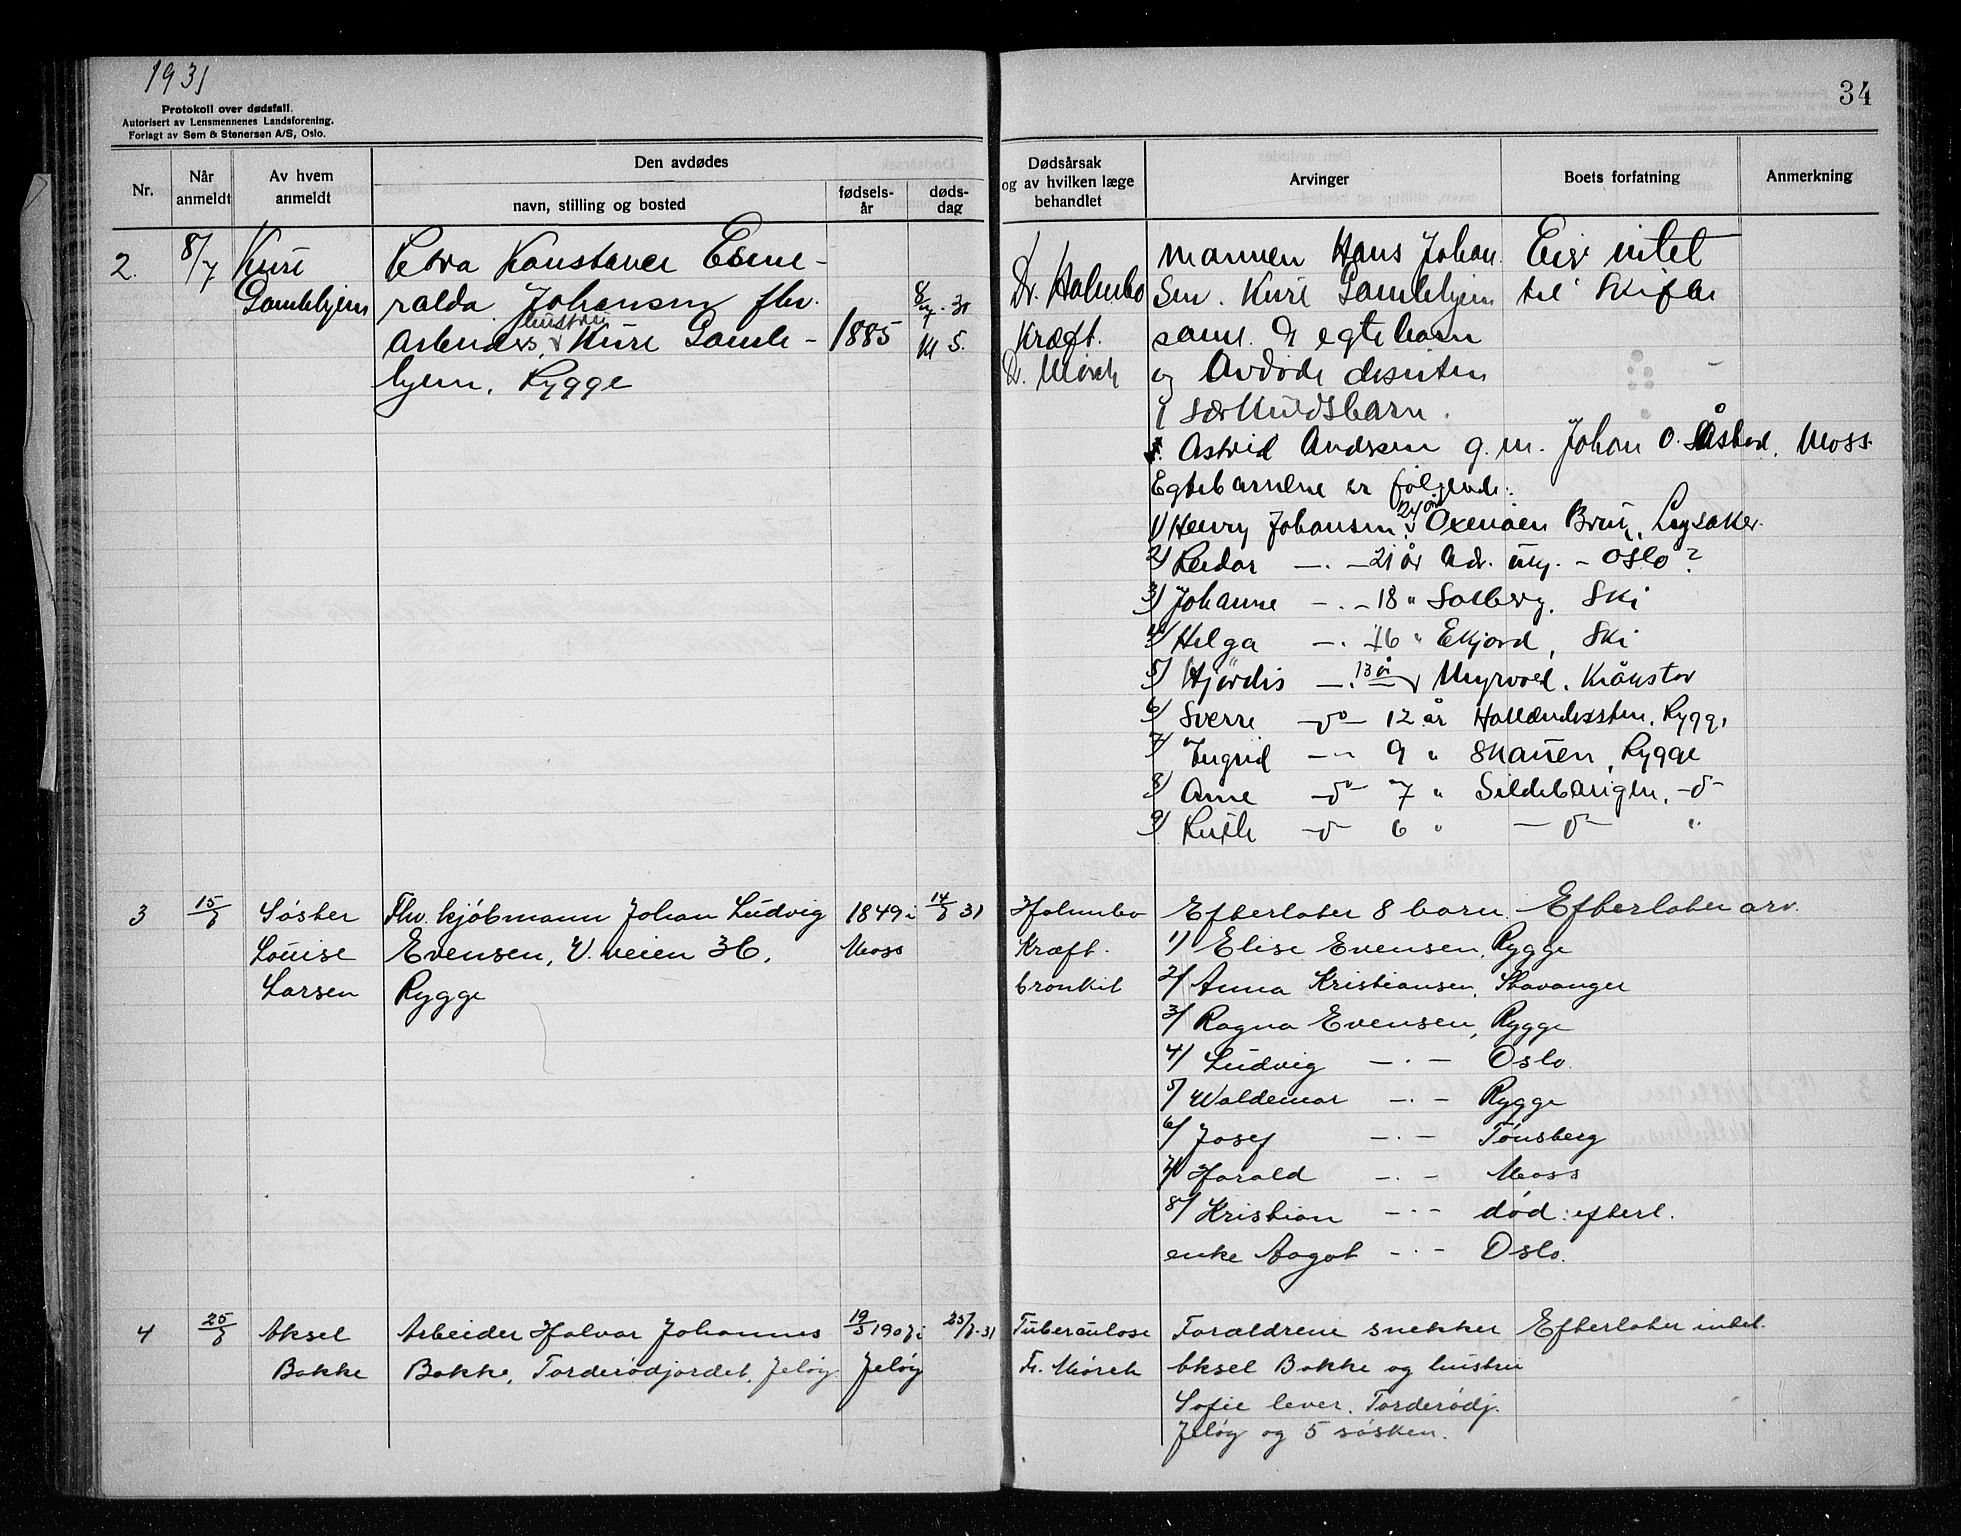 1931
34
Protokoll over dødsfall.
Autorisert av Lensmennenes Landsforening.
Forlagt av Sem & Stenersen A/S, Oslo.
Nr.
Når anmeldt
Av hvem anmeldt
Den avdødes
navn, stilling og bosted
fødsels-år
døds-dag
Dødsårsak og av hvilken læge behandlet
Arvinger
Boets forfatning
Anmerkning
2.
8/7
Kure
Gamlehjem
Petra Konstance Esme-
ralda Johansen fhv.
Arbeiders hustru, Kure Gamle-
hjem, Rygge
1885
8/7.31
Kl 5.
Dr. Holmbo
Kræft.
Dr. Mørch
Mannen Hans Johan
sen. Kure Gamlehjem
samt 9 egte barn
og Avdøde desuten
1 særkuldsbarn.
Astrid Andrsen g.m. Johan O. Åsberd, Moss.
Egtebarnene er følgende:
1) Henry Johansen, 24 år Oxenøen Bruk, Lysaker.
2) Reidar —.— 21 år Adr. – Oslo?
3) Johanne —.— 18 " Solberg, Ski
4) Helga —.— 16 " Ekjord, Ski
5) Hjørdis —.— 13 år Myrvold, Kråkstad
6) Sverre —do— 12 år Hollendersten, Rygge
7) Ingrid —"— 9 " Skauen, Rygge
8) Arne —do— 7 " Sildebaugen, —d—
9) Ruth —d— 6 " —d— "
Eier intet
til Skifte
3
15/8
Søster
Louise
Larsen
Fhv. kjøbmann Johan Ludvig
Evensen, V. veien 36,
Rygge
1849 i
Moss
14/8 31
Holmbo
Kræft.
bronkit
Efterlater 8 barn.
1/ Elise Evensen, Rygge
2/ Anna Kristiansen, Stavanger
3/ Ragna Evensen, Rygge
4/ Ludvig —.— Oslo.
5/ Waldemar —.— Rygge
6/ Josef —.— Tønsberg
7/ Harald —.— Moss
8/ Kristian —.— død: efterl.
enke Aagot —.— Oslo.
Efterlater arv.
4
25/8
Aksel
Bakke
Arbeider Halvar Johannes
Bakke, Torderødjordet, Jeløy.
19/3 1907 i
Jeløy
25/8.31
Tuberculose
Fr. Mørch
Forældrene snekker
Aksel Bakke og hustru
Sofie lever. Torderødj.
Jeløy og 5 søsken.
Efterlater intet.